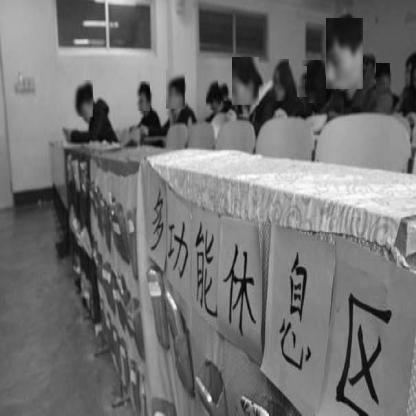 多功能休息区